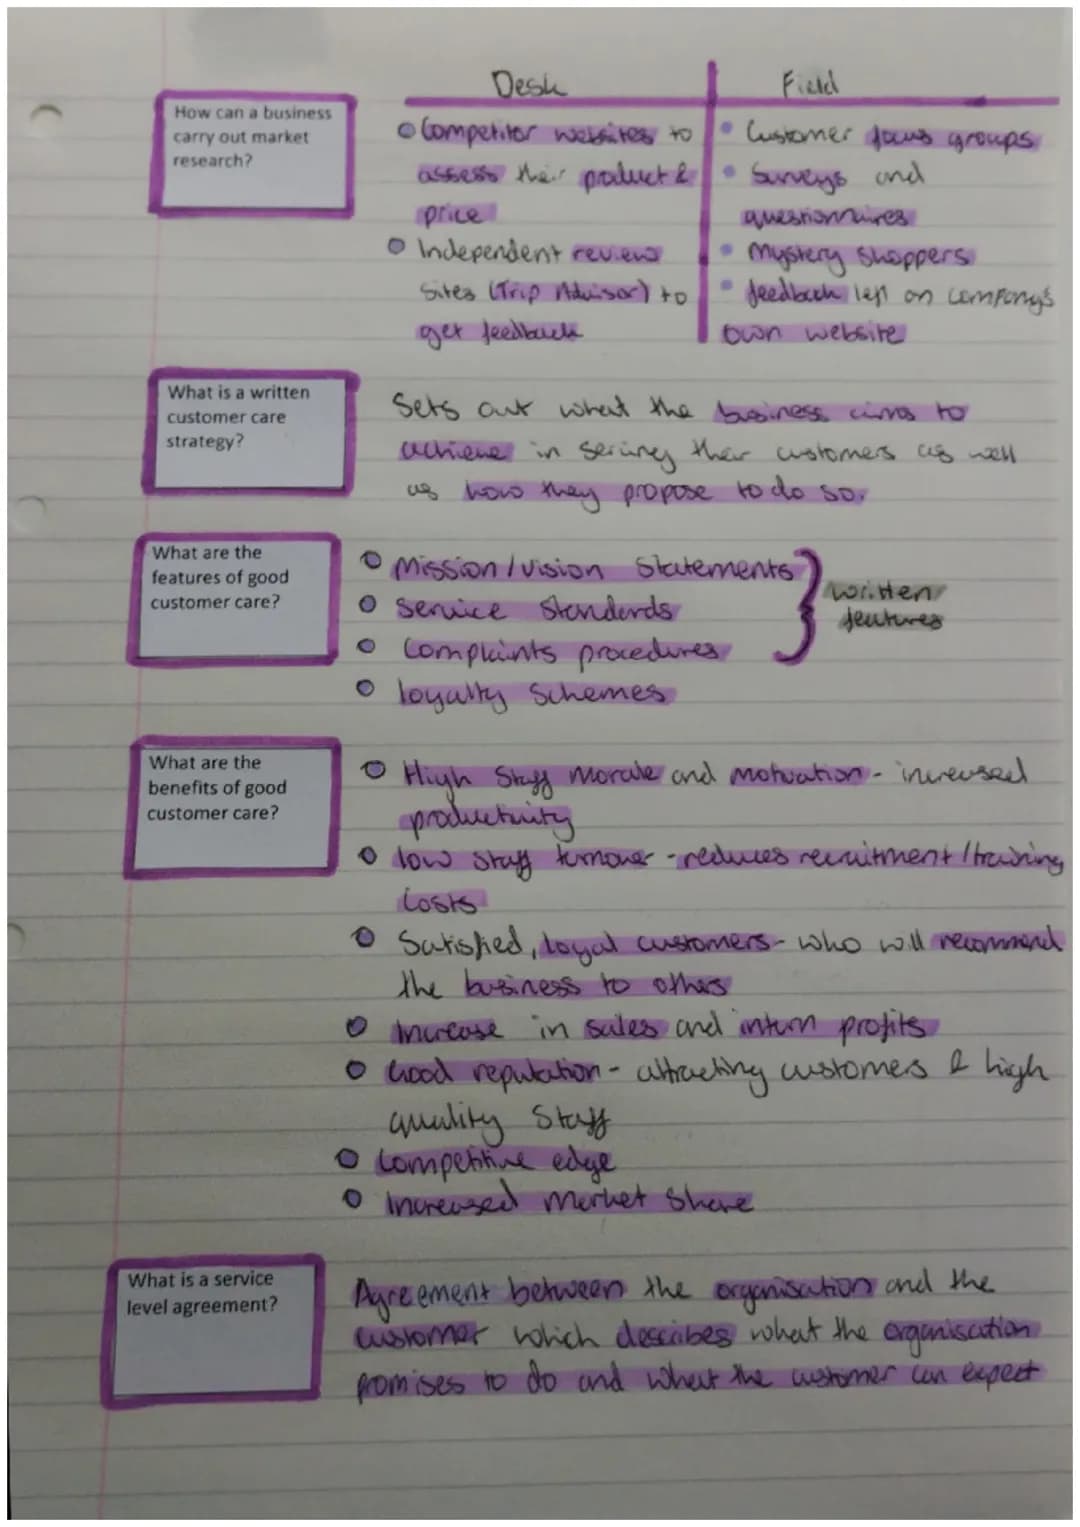 Desk
Field
How can a business
carry out market
research?
Competitor websites to
assess their product &
price
Independent review
Sites (Trip Advisor) to
get feedback
Customer focus groups
Surveys and
questionnaires
Mystery Shoppers
feedback left on company's
own website
What is a written
customer care
strategy?
Sets out what the business aims to
achieve in serving their customers as well
as how they propose to do so.
What are the
features of good
customer care?
Mission/vision Statements
Service Standards
Complaints procedures
loyalty Schemes
written
features
What are the
benefits of good
customer care?
High Staff Morale and motivation - increased
productivity
low staff turnover - reduces recruitment/training
Costs
Satisfied, loyal customers - who will recommend
the business to others
Increase in sales and inturn profits
Good reputation - attracting customers & high
quality Staff
Competitive edge
Increased Market Share
What is a service
level agreement?
Agreement between the organisation and the
customer which describes what the organisation
promises to do and what the customer can expect